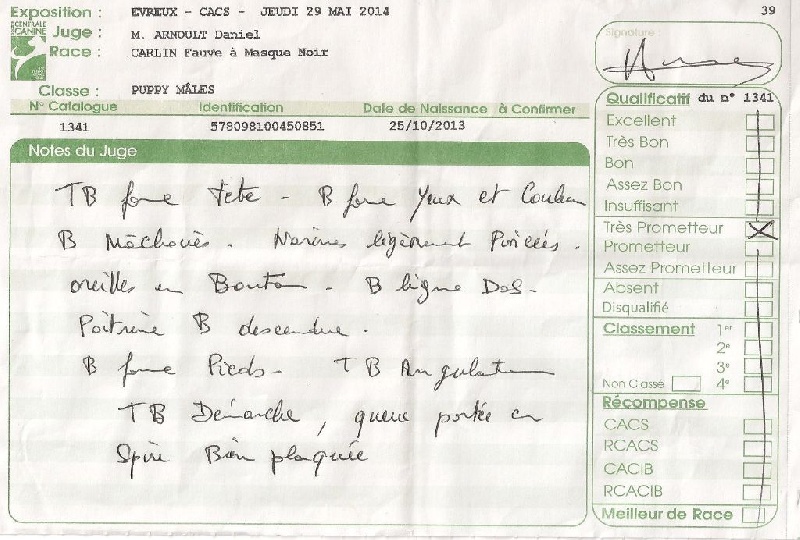 Exposition : EVREUX - CACS - JEUDI 29 MAI 2014
39
CENTRALE CANINE
Juge : M. ARNOULT Daniel
Race : CARLIN Fauve à Masque Noir
Classe : PUPPY MÂLES
N° Catalogue Identification Date de Naissance à Confirmer
1341 578098100450851 25/10/2013
Notes du Juge
TB forme tête - B forme yeux et Couleur
B Mâchoires. Narines légèrement Pincées.
oreilles en Bouton - B ligne Dos -
Poitrine B descendue.
B forme Pieds - TB Angulation
TB Démarche, queue portée en
Spire Bien plaquée
Signature :
Qualificatif du n° 1341
Excellent
Très Bon
Bon
Assez Bon
Insuffisant
Très Prometteur
Prometteur
Assez Prometteur
Absent
Disqualifié
Classement 1er
2e
3e
Non Classé 4e
Récompense
CACS
RCACS
CACIB
RCACIB
Meilleur de Race